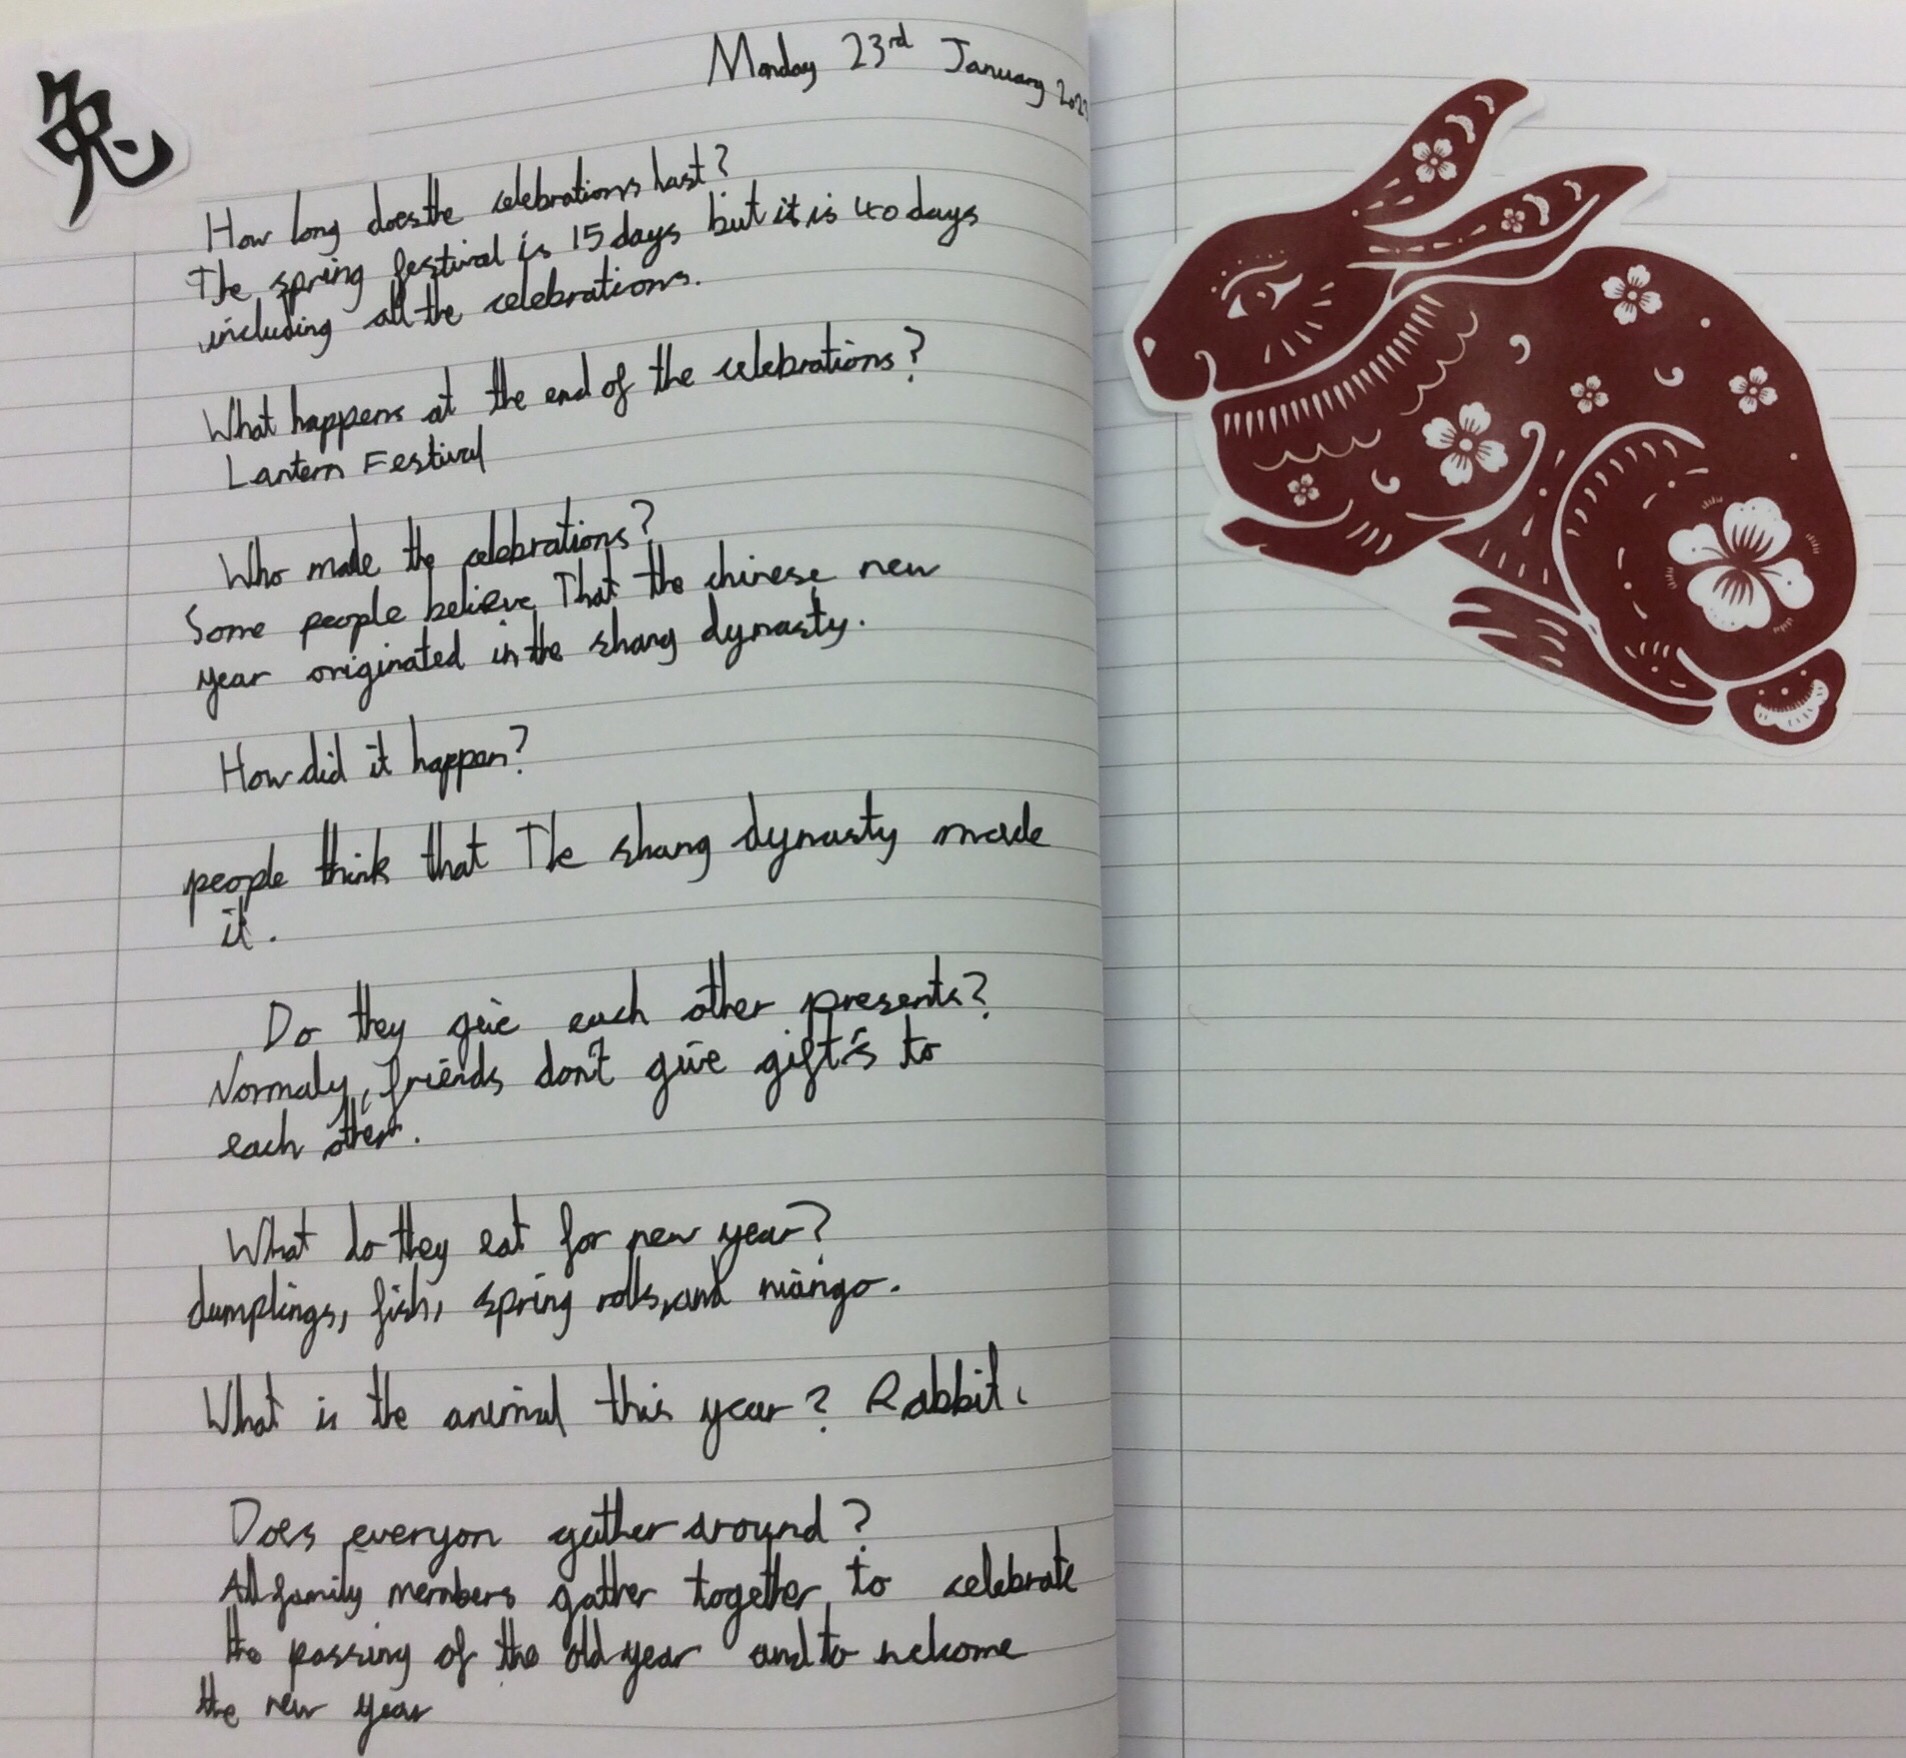 兔
Monday 23rd January 202
How long does the celebrations last?
The spring festival is 15 days but it is 40 days
including all the celebrations.
What happens at the end of the celebrations?
Lantern Festival
Who made the celebrations?
Some people believe That the chinese new
year originated in the shang dynasty.
How did it happen?
people think that The shang dynasty made
it.
Do they give each other presents?
Normaly, friends don't give gift's to
each other.
What do they eat for new year?
dumplings, fish, spring rolls, and mango.
What is the animal this year? Rabbit.
Does everyon gather around?
All family members gather together to celebrate
the passing of the old year and to welcome
the new year